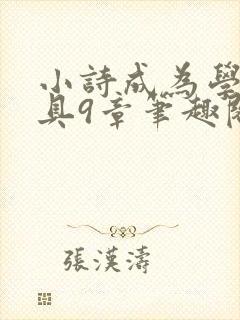 小詩成為學
具9章筆趣閱
張漢濤